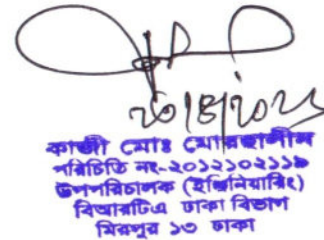 ২০/৪/২০২১
কাজী মোঃ মোরছালীন
পরিচিতি নং-২০১২১০২১১৯
উপপরিচালক (ইঞ্জিনিয়ারিং)
বিআরটিএ ঢাকা বিভাগ
মিরপুর ১৩ ঢাকা